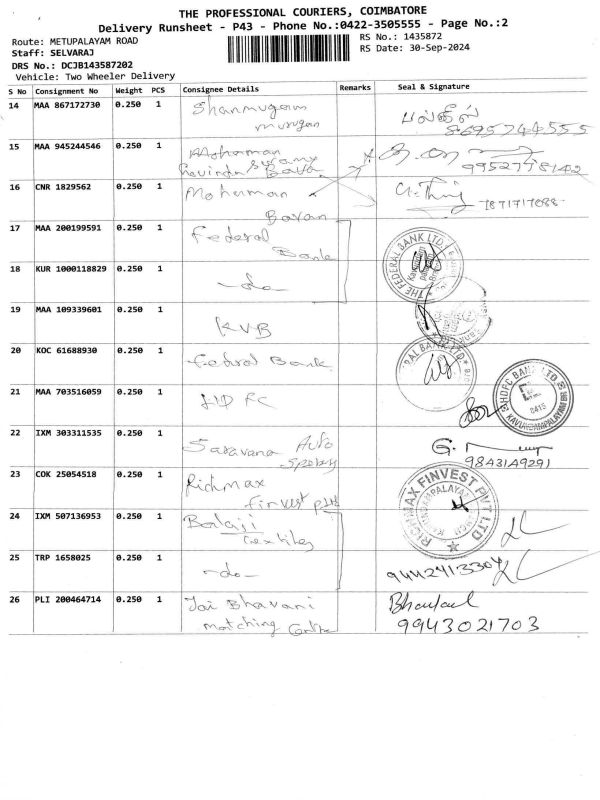 THE PROFESSIONAL COURIERS, COIMBATORE
Delivery Runsheet - P43 - Phone No.:0422-3505555 - Page No.:2
Route: METUPALAYAM ROAD
RS No.: 1435872
Staff: SELVARAJ
RS Date: 30-Sep-2024
DRS No.: DCJB143587202
Vehicle: Two Wheeler Delivery
S No Consignment No Weight PCS Consignee Details Remarks Seal & Signature
14 MAA 867172730 0.250 1 Shanmugam
Murugan
8695744555
15 MAA 945244546 0.250 1 Mohaman
9952778142
16 CNR 1829562 0.250 1 Mohaman
Bavan
17 MAA 200199591 0.250 1 Federal
Bank
THE FEDERAL BANK LTD
18 KUR 1000118829 0.250 1 -do-
19 MAA 109339601 0.250 1 KVB
20 KOC 61688930 0.250 1 Federal Bank
21 MAA 703516059 0.250 1 HDFC
HDFC BANK LTD
KAVUNDAMPALAYAM
22 IXM 303311535 0.250 1 Saravana Auto
G.
9843149291
23 COK 25054518 0.250 1 Richmax
Finvest
RICHMAX FINVEST PVT LTD
24 IXM 507136953 0.250 1 Balaji
Textiles
25 TRP 1658025 0.250 1 -do-
9442413304
26 PLI 200464714 0.250 1 Jai Bhavani
Matching Centre
9943021703